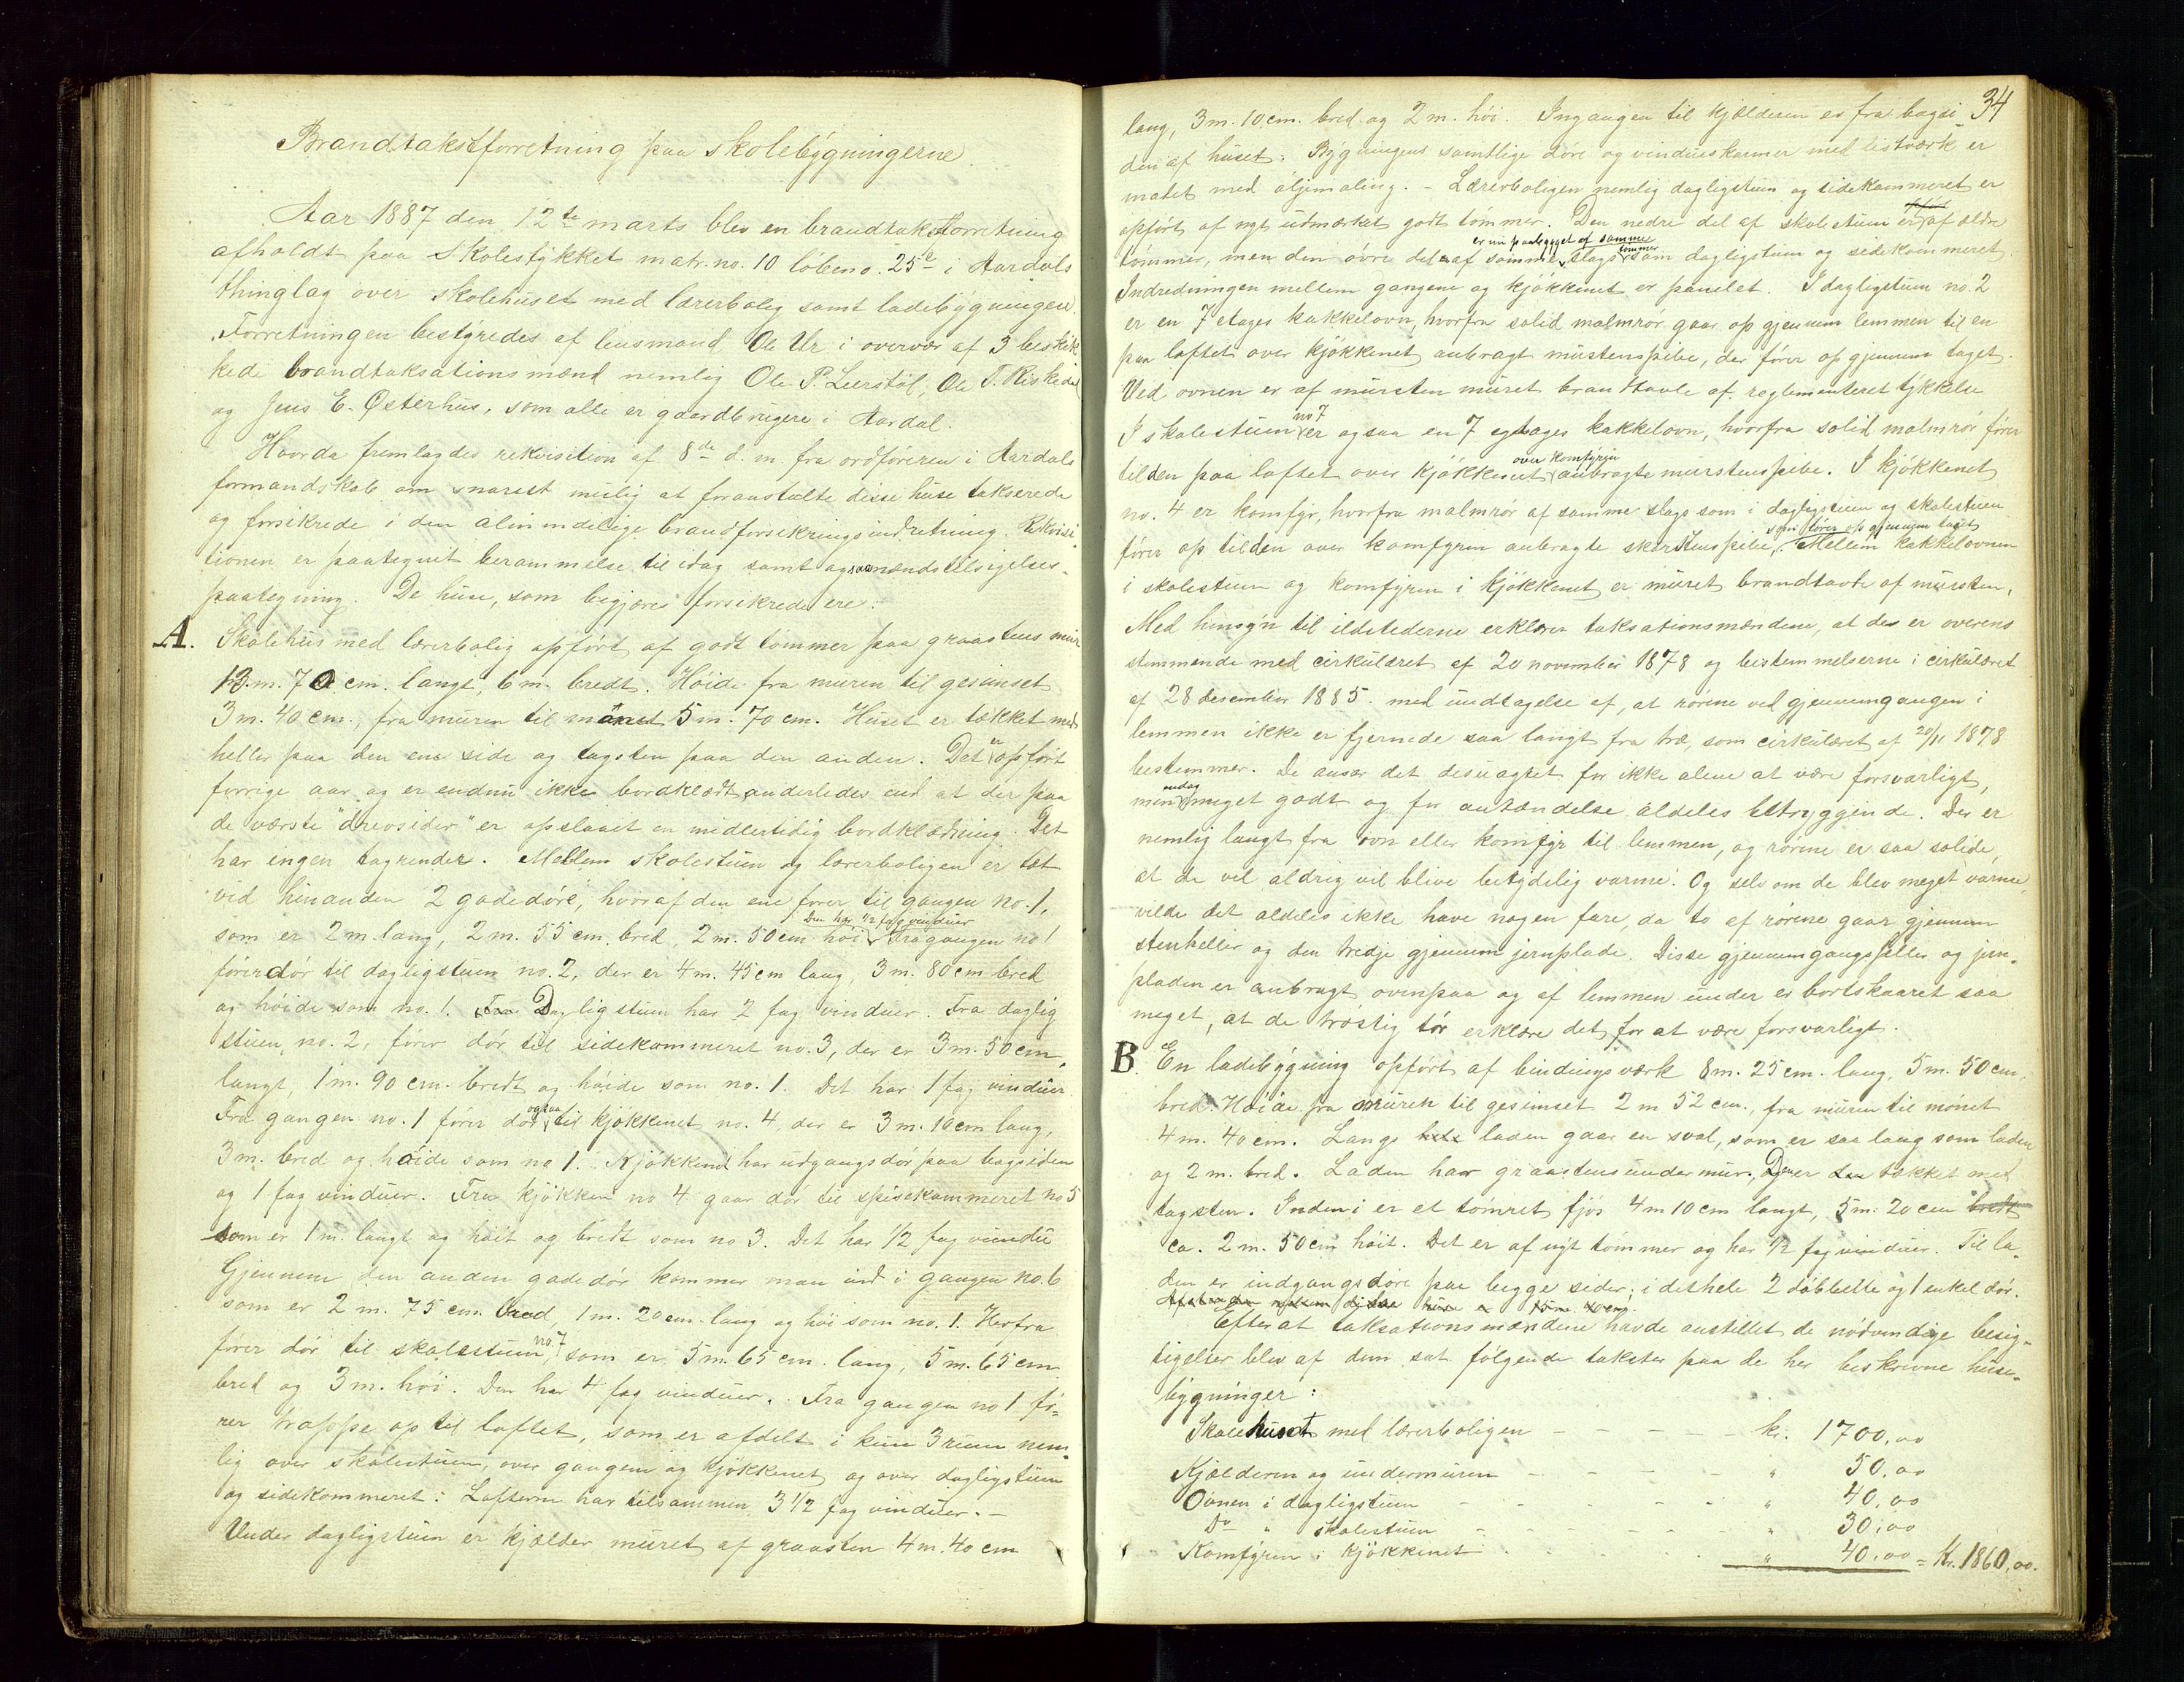 Brandtakstforretning paa skolebygningerne.
Aar 1887 den 12te marts blev en brandtakstforretning
afholdt paa Skolestykket matr. no. 10 löbeno. 25e i Aardals
thinglag over skolehuset med lærerbolig samt ladebygningen.
Forretningen bestyredes af lensmand Ole Ur i overvær af 3 beskik
kede brandtaksationsmænd nemlig Ole P. Leerstöl, Ole T. Riskedal
og Jens E. Østerhus, som alle er gaardbrugere i Aardal.
Hvorda fremlagdes rekvisition af 8de d. m. fra ordföreren i Aardals
formandskab om snarest mulig at foranstalte disse huse takserede
og forsikrede i den almindelige brandforsikringsindretning. Rekvisi-
tionen er paategnet berammelse til idag samt ogsaa mændstilsigelses-
paategning. De huse, som begjæres forsikrede ere:
A. Skolehus med lærerbolig opført af godt tömmer paa graastensmur
13 m. 70 cm. langt, 6 m. bredt. Höide fra muren til gesimset
3 m. 40 cm., fra muren til mönet 5 m. 70 cm. Huset er tækket med
heller paa den ene side og tagsten paa den anden. Det er opfört
forrige aar og er endnu ikke bordklædt anderledes end at der paa
de værste "drevsider" er opslaaet en midlertidig bordklædning. Det
har ingen tagrender. Mellem skolestuen og lærerboligen er tæt
ved hinanden 2 gadedöre, hvoraf den ene förer til gangen no. 1,
Den har 1/2 fag vinduer
som er 2 m. lang, 2 m. 55 cm. bred, 2 m. 50 cm. höi. Fra gangen no 1
förer dör til dagligstuen no. 2, der er 4 m. 45 cm lang, 3 m. 80 cm bred
og höide som no. 1. Fra Dagligstuen har 2 fag vinduer. Fra daglig
stuen no. 2, förer dör til sidekammeret no. 3, der er 3 m. 50 cm,
langt, 1 m. 90 cm. bredt og höide som no. 1. Det har 1 fag vinduer
Fra gangen no. 1 förer dör ogsaa til kjökkenet no. 4, der er 3 m. 10 cm lang,
3 m. bred og höide som no 1. Kjökkenet har udgangsdör paa bagsiden
og 1 fag vinduer. Fra kjökken no 4 gaar dör til spisekammeret no 5
som er 1 m. langt og höit og bredt som no 3. Det har 1/2 fag vindu
Gjennem den anden gadedör kommer man ind i gangen no. 6
som er 2 m. 75 cm. bred, 1 m. 20 cm. lang og höi som no. 1. Herfra
förer dör til skolestuen no 7, som er 5 m. 65 cm. lang, 5 m. 65 cm
bred og 3 m. höi. Den har 4 fag vinduer. Fra gangen no 1 fö-
rer trappe op til loftet, som er afdelt i kun 3 rum nem-
lig over skolestuen, over gangene og kjökkenet og over dagligstuen
og sidekammeret. Lofterne har tilsammen 3 1/2 fag vinduer. -
Under dagligstuen er kjælder muret af graasten 4 m. 40 cm
34
lang, 3 m. 10 cm. bred og 2 m. höi. Ingangen til kjælderen er fra bagsi-
den af huset. Bygningens samtlige döre og vindueskarmer med listværk er
malet med oljemaling. - Lærerboligen nemlig dagligstuen og sidekammeret er
opfört af nyt udmærket godt tömmer. Den nedre del af skolestuen er af ældre
er nu paabygget af samme
tömmer, men den övre del af samme slags tömmer som dagligstuen og sidekammeret.
Indredningen mellem gangene og kjökkenet er panelet. I dagligstuen no. 2
er en 7 etages kakkelovn, hvorfra solid malmrör gaar op gjennem lemmen til en
paa loftet over kjökkenet anbragt murstenspibe, der förer op gjennem taget.
Ved ovnen er af mursten muret brandtavle af reglementeret tykkelse
I skolestuen no 7 er ogsaa en 7 etages kakkelovn, hvorfra solid malmrör förer
over komfyren
til den paa loftet over kjökkenet anbragte murstenspibe. I kjökkenet
no. 4 er komfyr, hvorfra malmrör af samme slags som i dagligstuen og skolestuen
som förer op gjennem taget
förer op til den over komfyren anbragte skorstenspibe. Mellem kakkelovnen
i skolestuen og komfyren i kjökkenet er muret brandtavle af mursten.
Med hensyn til ildstederne erklærer taksationsmændene, at des er overens
stemmende med cirkulæret af 20 november 1878 og bestemmelserne i cirkulæret
af 28 desember 1885. med undtagelse af, at rörene ved gjennemgangen i
lemmen ikke er fjernede saa langt fra træ, som cirkulæret af 20/11 1878
bestemmer. De anser det desuagtet for ikke alene at være forsvarligt,
men endog meget godt og for antændelse aldeles betryggende. Der er
nemlig langt fra ovn eller komfyr til lemmen, og rörene er saa solide,
at de vel aldrig vil blive betydelig varme. Og selv om de blev meget varme,
vilde det aldeles ikke have nogen fare, da to af rörene gaar gjennem
stenheller og den tredje gjennem jernplade. Disse gjennemgangsheller og jern-
pladen er anbragt ovenpaa og af lemmen under er bortskaaret saa
meget, at de trøstig tör erklære det for at være forsvarligt.
B. En ladebygning opfört af bindingsværk 8 m. 25 cm. lang, 5 m. 50 cm.
bred. Höide fra muren til gesimset 2 m 52 cm., fra muren til mönet
4 m. 40 cm. Langs hele laden gaar en sval, som er saa lang som laden
og 2 m. bred. Laden har graastensundermur, Den er tækket med
tagsten. Inden i er et tömret fjös 4 m 10 cm langt, 5 m. 20 cm bredt
ca. 2 m. 50 cm höit. Det er af nyt tömmer og har 1/2 fag vinduer. Til la-
den er indgangsdöre paa begge sider, i det hele 2 dobbelte og 1 enkel dör.
Afstanden mellem disse huse er 15 m. 40 cm.
Efterat taksationsmændene havde anstillet de nödvendige besig-
tigelser blev af dem sat fölgende takster paa de her beskrevne huse-
bygninger:
Skolehuset med lærerboligen - - - - kr. 1700,00
Kjælderen og undermuren - - - - " 50,00
Ovnen i dagligstuen - - - - - " 40,00
Do " skolestuen - - - - - " 30,00
Komfyren i kjökkenet - - - - " 40,00 = Kr. 1860,00.